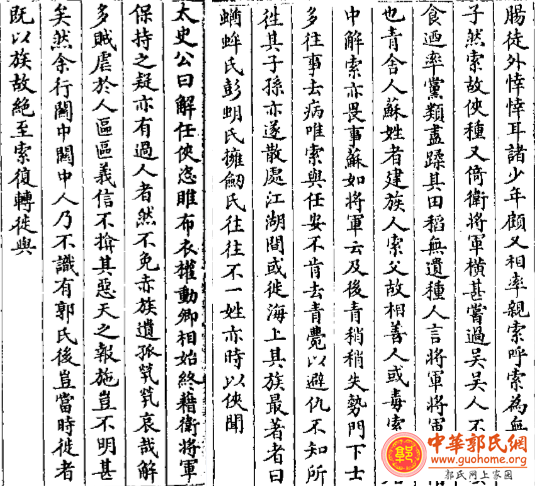 腸徒外悻悻耳諸少年顧又相率親索呼索為無
子然索故俠種又倚衛將軍橫甚嘗過吳吳人不
食迺率黨類盡躁其田稻無遺種人言將軍將軍
也青舍人蘇姓者建族人索父故相善人或毒索
中解索亦畏事蘇如將軍云及後青稍稍失勢門下士
多往事去病唯索與任安不肯去青薨以避仇不知所
徃其子孫亦遂散處江湖間或徙海上其族最著者曰
蟙蛑氏彭蚏氏擁劒氏往往不一姓亦時以俠聞
太史公曰解任俠恣睢布衣權動卿相始終藉衛將軍
保持之疑亦有過人者然不免赤族遺孤煢煢哀哉解
多賊虐於人區區義信不揜其惡天之報施豈不明甚
矣然余行關中關中人乃不識有郭氏後豈當時徙者
既以族故絕至索復轉徙與
中華郭氏網
www.guohome.org
郭氏网上家园